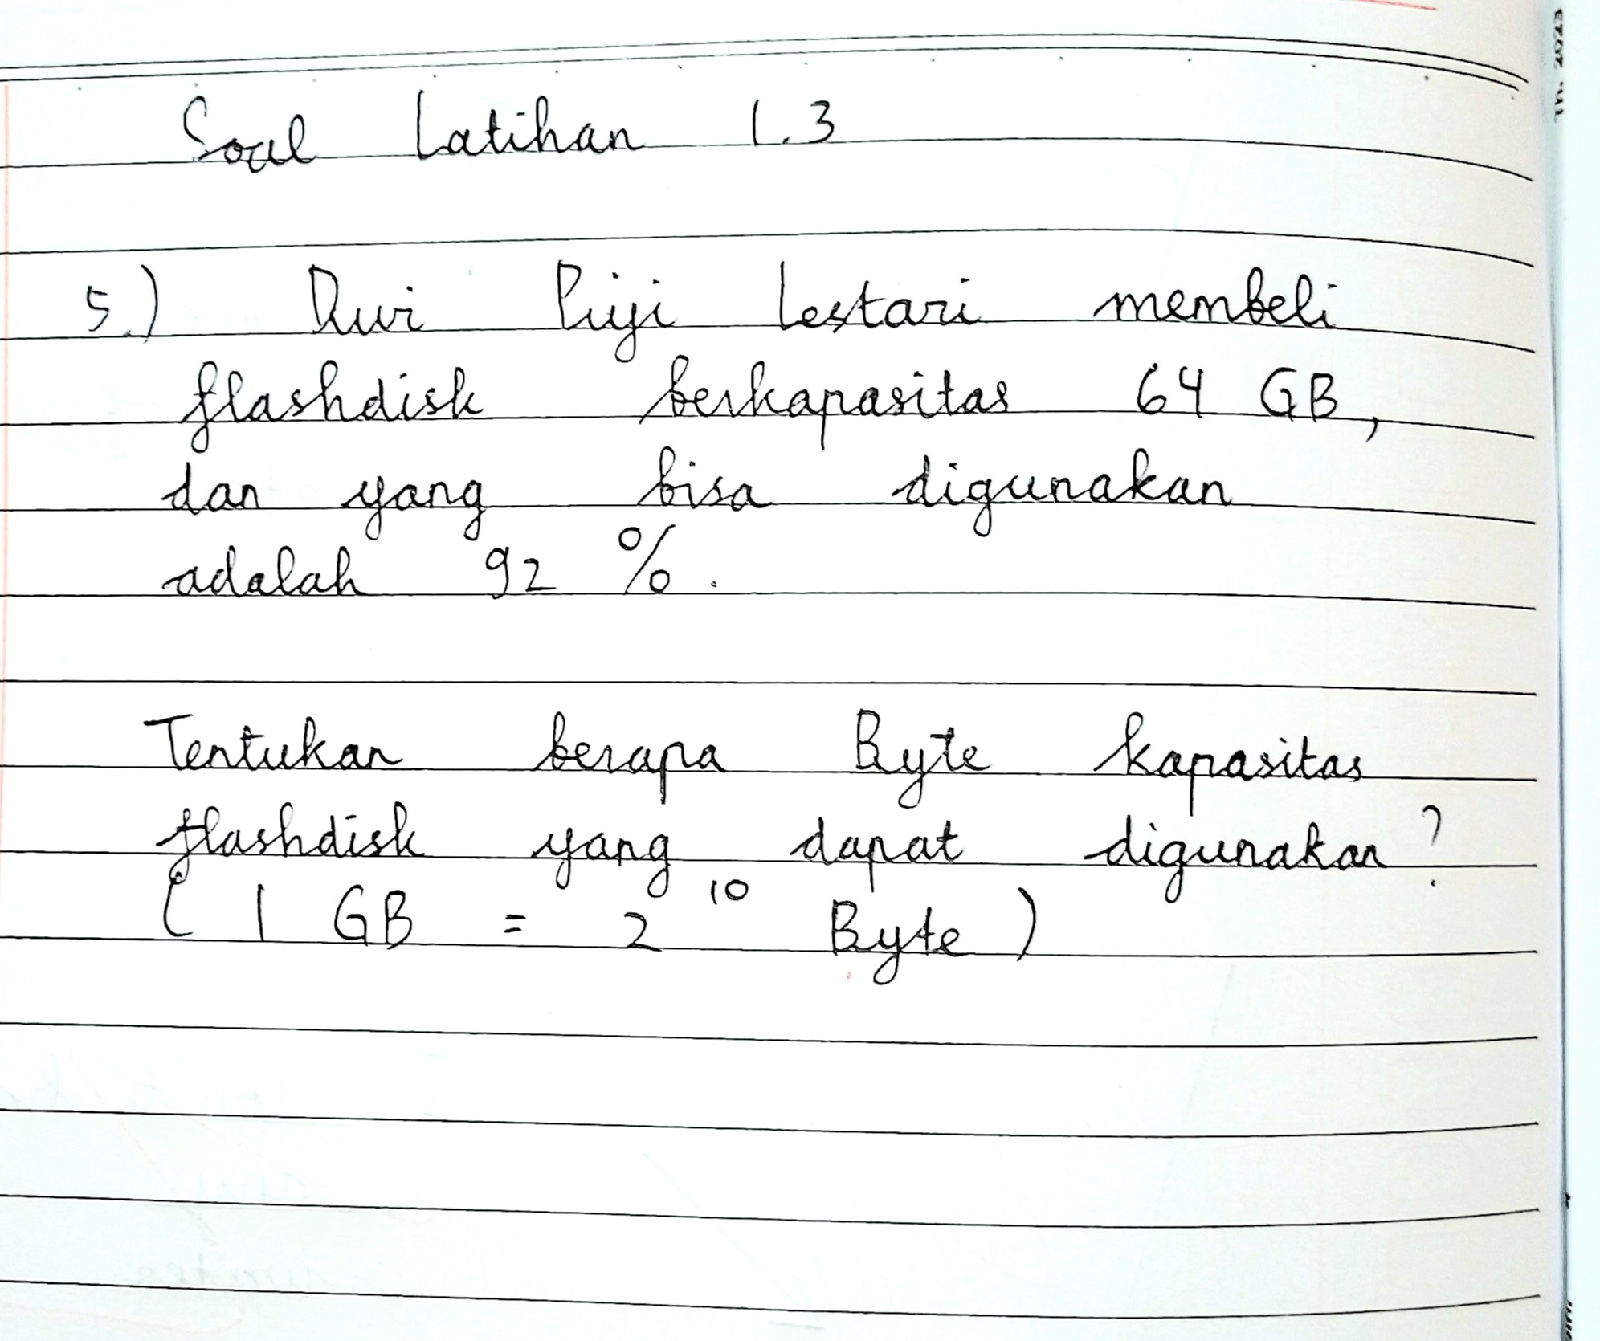 Soal Latihan 1.3
5.) Dwi Puji Lestari membeli
flashdisk berkapasitas 64 GB,
dan yang bisa digunakan
adalah 92 %.
Tentukan berapa Byte kapasitas
flashdisk yang dapat digunakan?
( 1 GB = 2¹⁰ Byte )